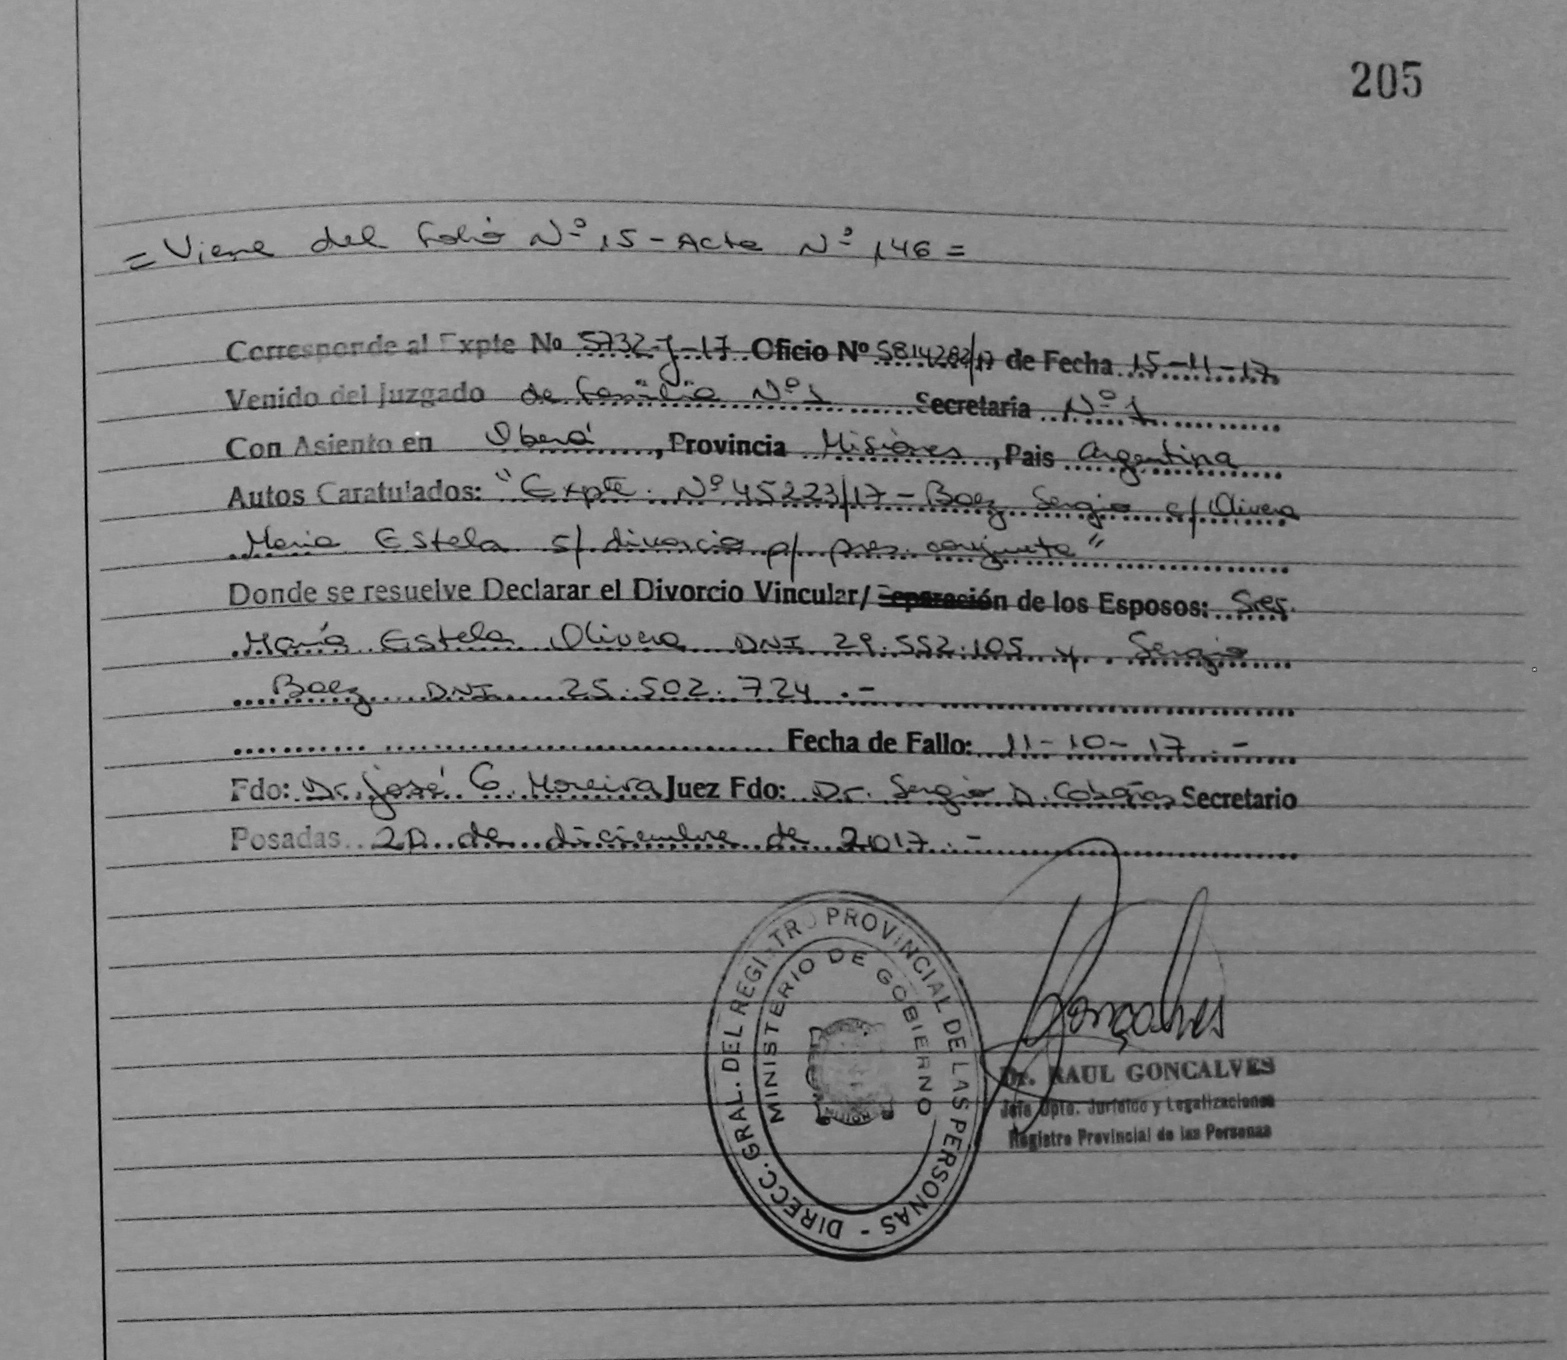 205
= Viene del folio Nº 15 - Acta Nº 146 =
Corresponde al Expte No 5732-J-17 Oficio Nº 5814282/17 de Fecha 15-11-17
Venido del Juzgado de familia Nº 1 Secretaría Nº 1
Con Asiento en Oberá, Provincia Misiones, Pais Argentina
Autos Caratulados: "Expte. Nº 45223/17 - Baez Sergio c/ Olivera
Maria Estela s/ divorcio p/ pres. conjunta"
Donde se resuelve Declarar el Divorcio Vincular/ Separación de los Esposos: Sres.
María Estela Olivera DNI 29.552.105 y Sergio
Baez DNI 25.502.724.-
Fecha de Fallo: 11-10-17.-
Fdo: Dr. José G. Moreira Juez Fdo: Dr. Sergio D. Cabañas Secretario
Posadas 20 de diciembre de 2017.-
DIRECC. GRAL. DEL REGISTRO PROVINCIAL DE LAS PERSONAS -
MINISTERIO DE GOBIERNO
Gonçalves
Dr. RAUL GONCALVES
Jefe Dpto. Jurídico y Legalizaciones
Registro Provincial de las Personas